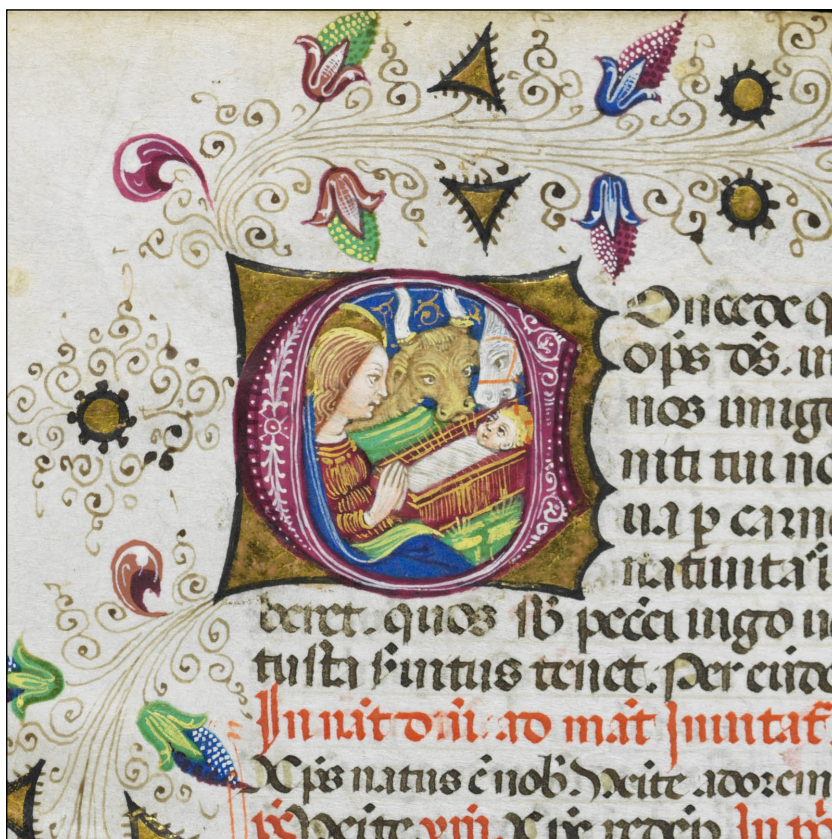 Oncede q
op̄s d̄s. ut
nos unige
niti tui no
ua p carn
natiuita
beret. quos sb̄ pecc̄i iugo u
tusta s̄uitus tenet. Per eund̄e
In nat̄ dn̄i. ad mat̄ Inuitat̄
Xp̄s natus ē nob̄. Ueite adorem
p̄s Ueite. xp̄e redēp̄ In p̄